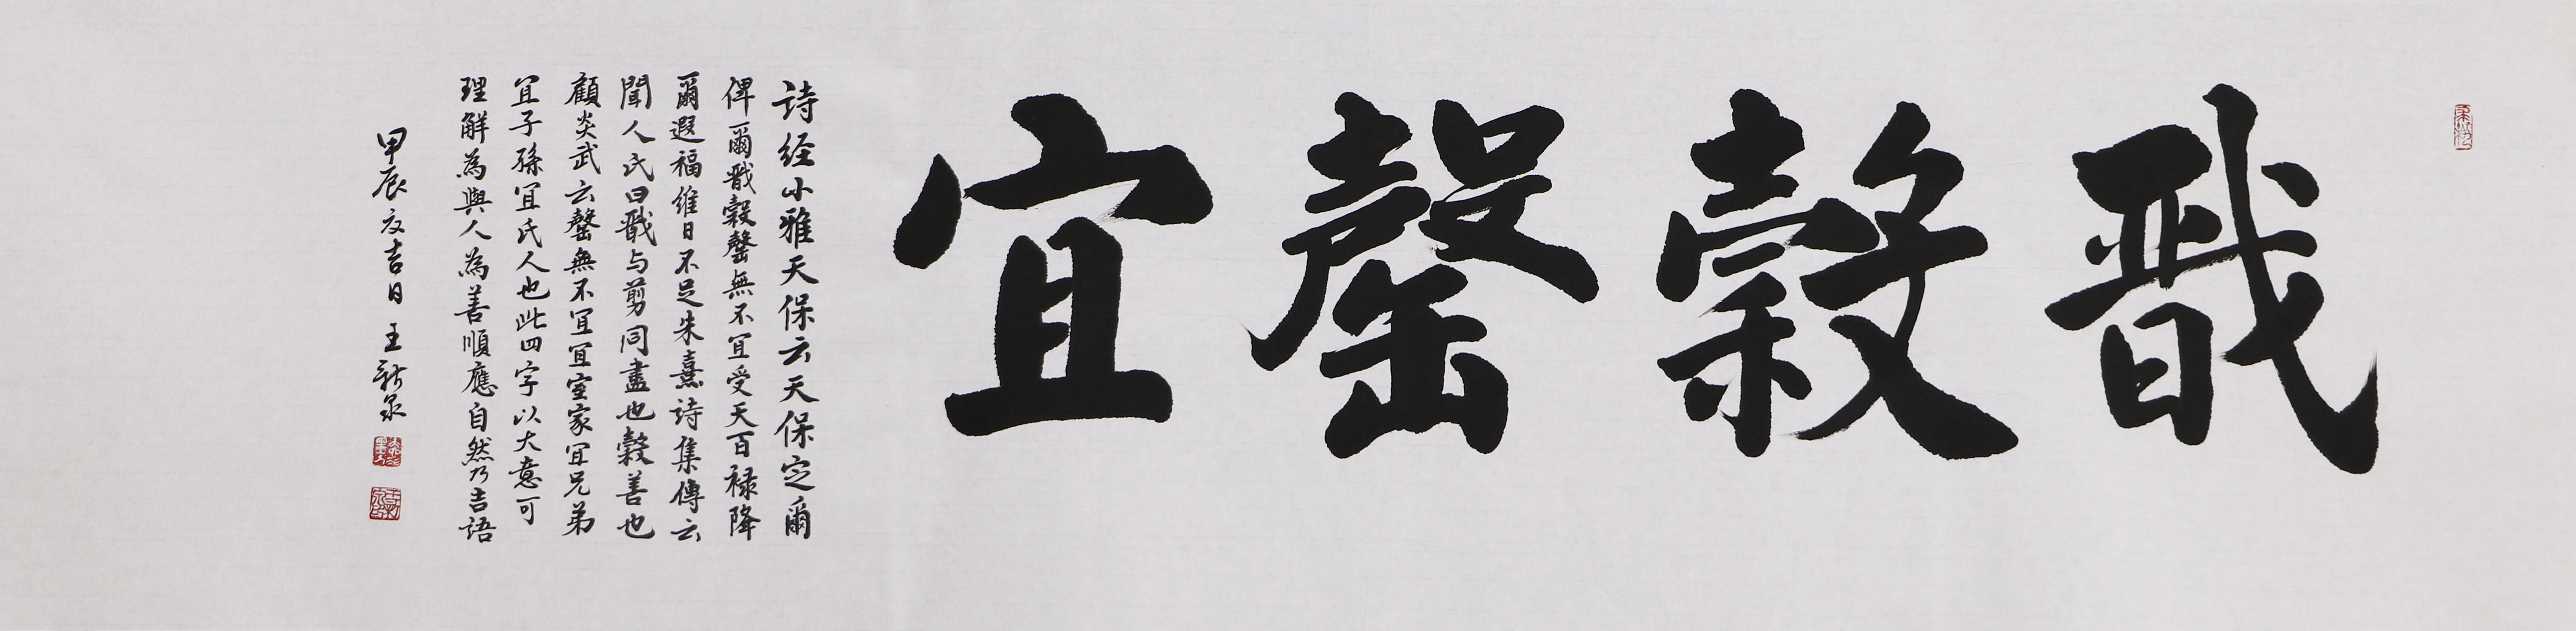 戩穀罄宜
詩经小雅天保云天保定爾
俾爾戩穀罄無不宜受天百禄降
爾遐福維日不足朱熹詩集傳云
聞人氏曰戩与剪同盡也穀善也
顧炎武云罄無不宜宜室家宜兄弟
宜子孫宜民人也此四字以大意可
理解為與人為善順應自然乃吉語
甲辰夏吉日 王新泉